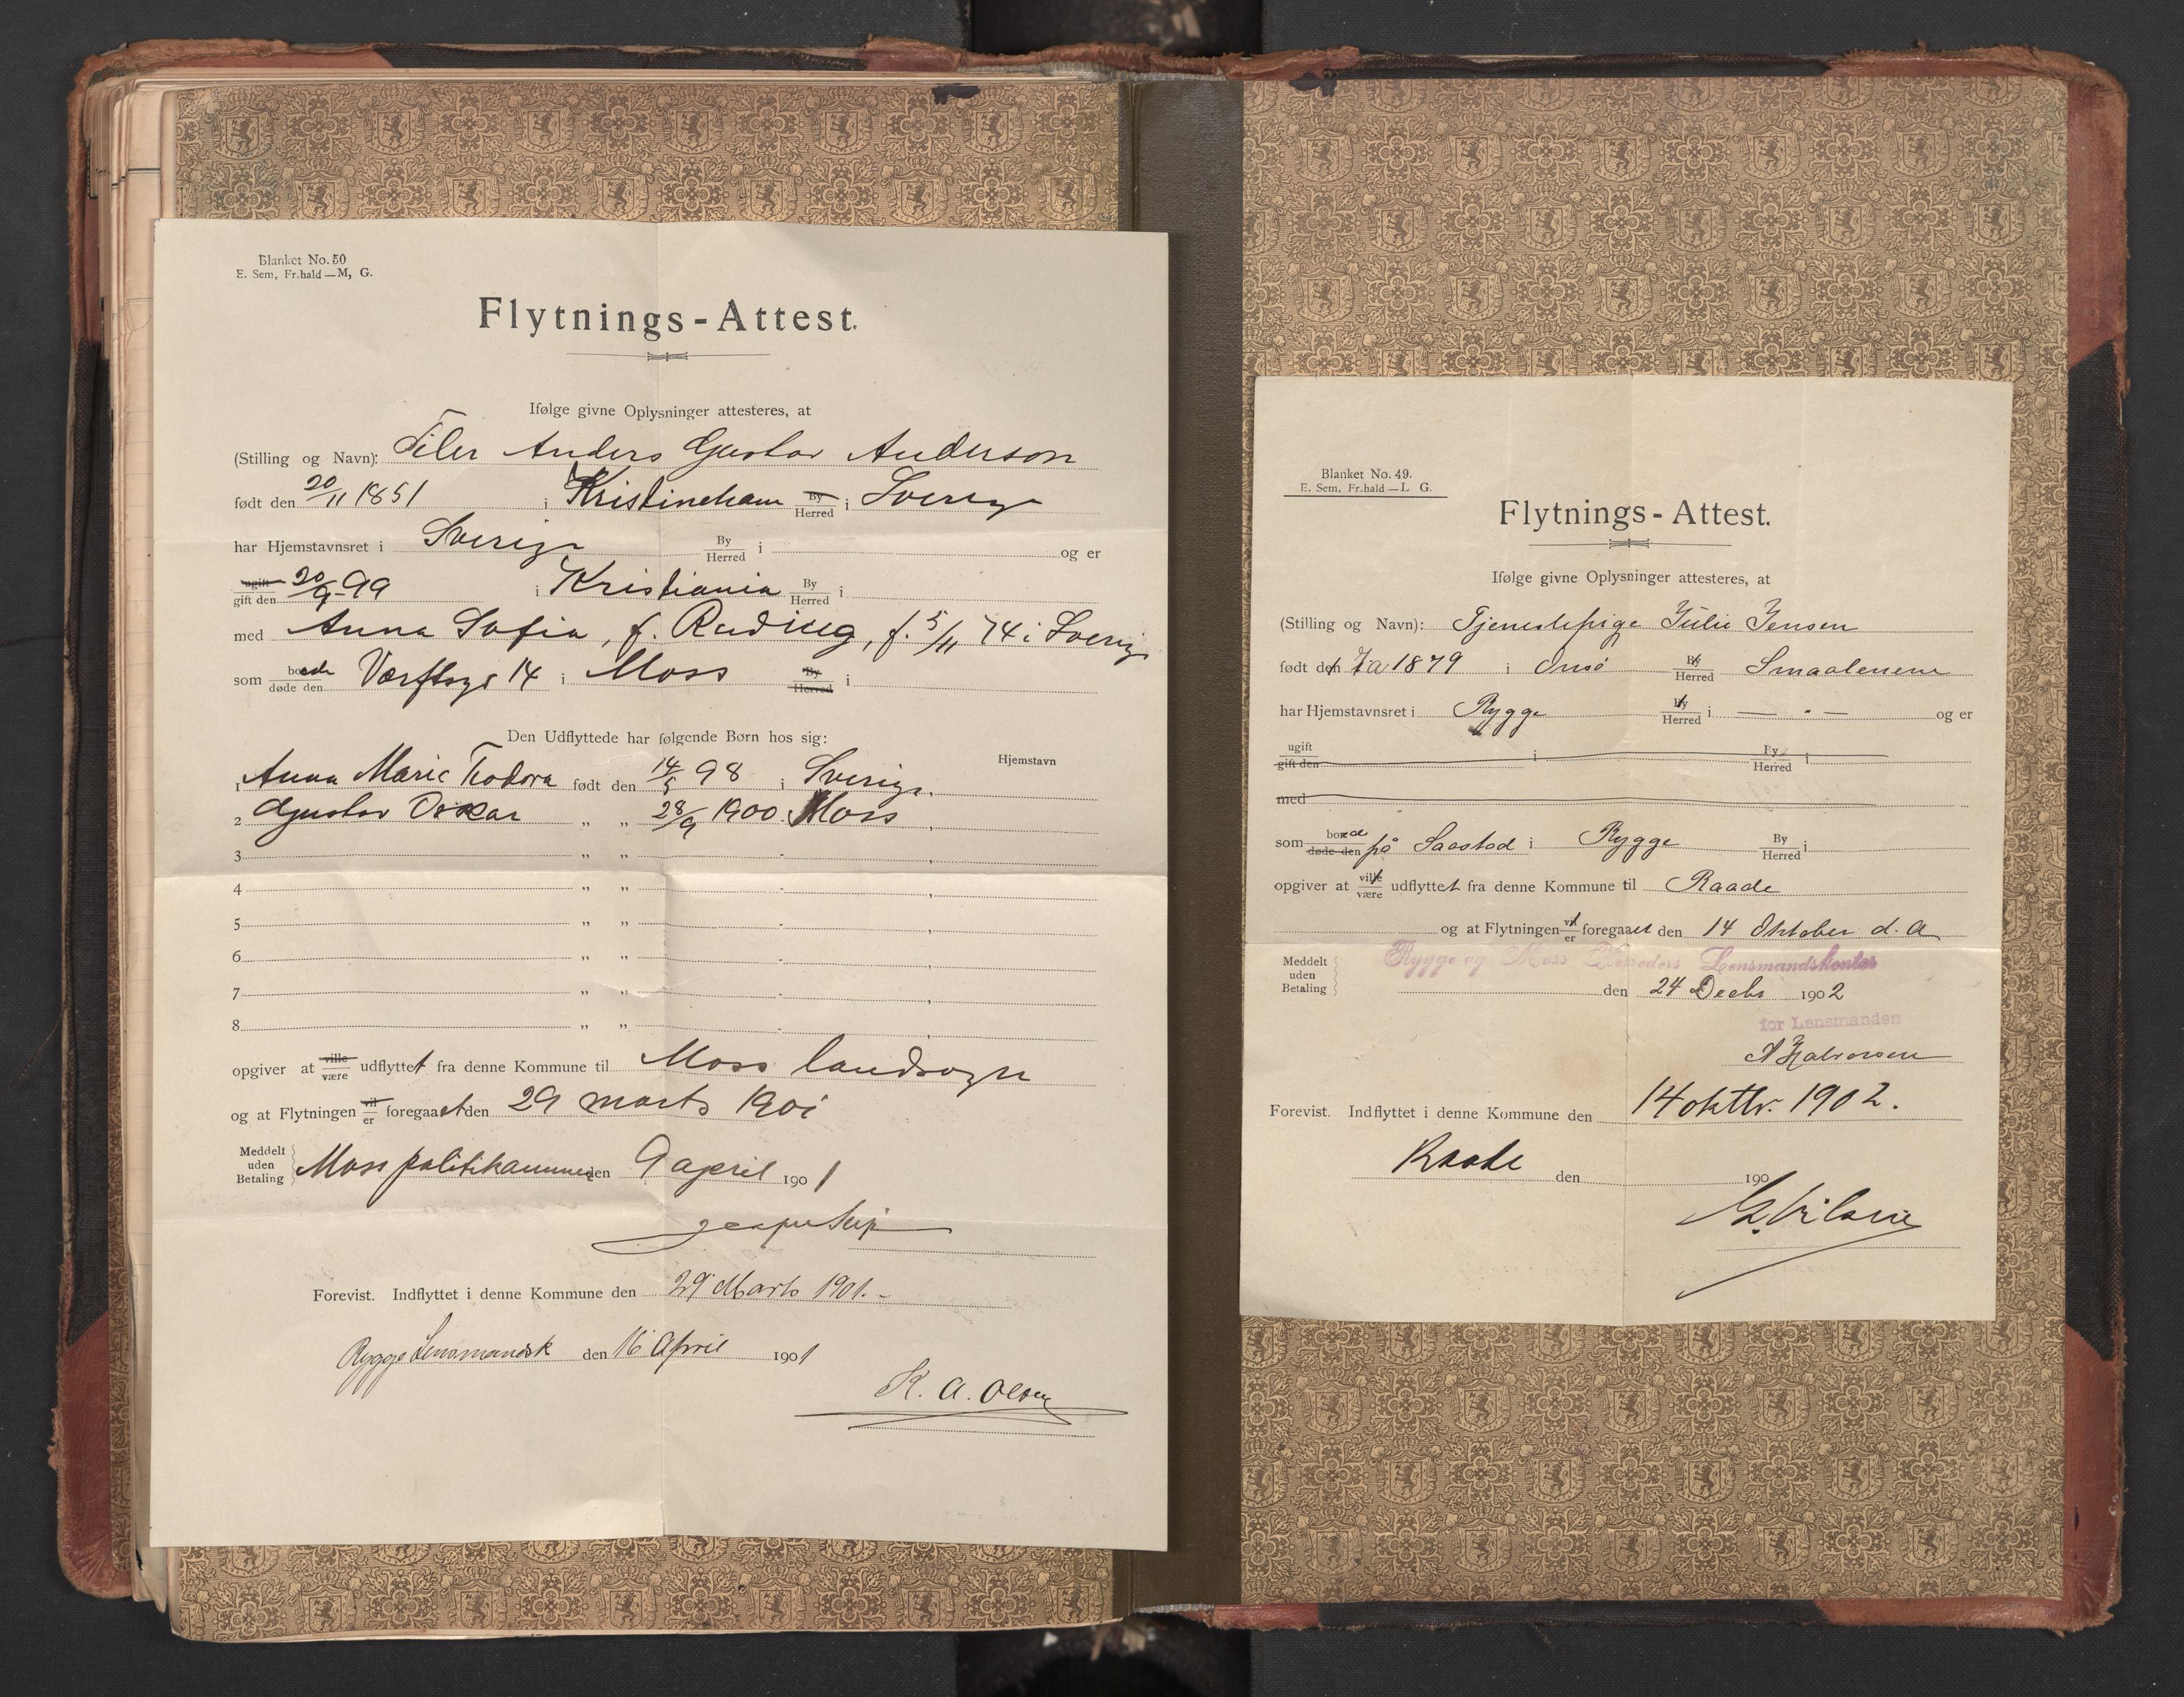 Blanket No. 50
E. Sem, Fr.hald—M, G.
Flytnings-Attest.
Ifølge givne Oplysninger attesteres, at
(Stilling og Navn): Filer Anders Gustav Anderson
født den 20/11 1851 i Kristineham By Herred i Sverige
har Hjemstavnsret i Sverige By Herred i og er
ugift gift den 20/9-99 i Kristiania By Herred i
med Anna Sofia, f. Rudieg, f. 5/11 74 i Sverig
som boede døde den Værftsgt 14 i Moss By Herred i
Den Udflyttede har følgende Børn hos sig:
Hjemstavn
1 Anna Marie Teodora født den 14/5 98 i Sverige.
2 Gustav Oskar " " 28/9 1900. Moss ,
3 " " - ,
4 " " - ,
5 " " - ,
6 " " - ,
7 " " - ,
8 " " - ,
opgiver at ville være udflyttet fra denne Kommune til Moss landsogn
og at Flytningen vil er foregaaet den 29 marts 1901
Meddelt uden Betaling Moss politikammer den 9 april 1901
Forevist. Indflyttet i denne Kommune den 29 Marts 1901.-
Rygge Lensmandsk den 16 April 1901
K. A. Olsen
Blanket No. 49.
E. Sem, Fr.hald—L G.
Flytnings-Attest.
Ifølge givne Oplysninger attesteres, at
(Stilling og Navn): Tjenestepige Julie Jensen
født den 1879 i Onsø By Herred Smaalenene
har Hjemstavnsret i Rygge By Herred i — " — og er
ugift gift den i By Herred i
med
som boede døde den på Saastad i Rygge By Herred i
opgiver at ville være udflyttet fra denne Kommune til Raade
og at Flytningen vil er foregaaet den 14 Oktober d. A
Meddelt uden Betaling Rygge og Moss Herreders Lensmandskontor
den 24 Decbr 1902
for Lensmanden
A Halvorsen
Forevist. Indflyttet i denne Kommune den 14 oktbr. 1902.
Raade den 190